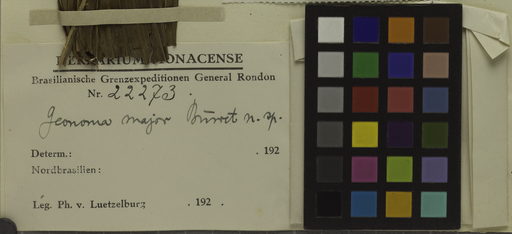 HERBARIUM MONACENSE
Brasilianische Grenzexpeditionen General Rondon
Nr. 22273.
Geonoma major Burret n. sp.
Determ.: . 192
Nordbrasilien:
Leg. Ph. v. Luetzelburg . 192 .